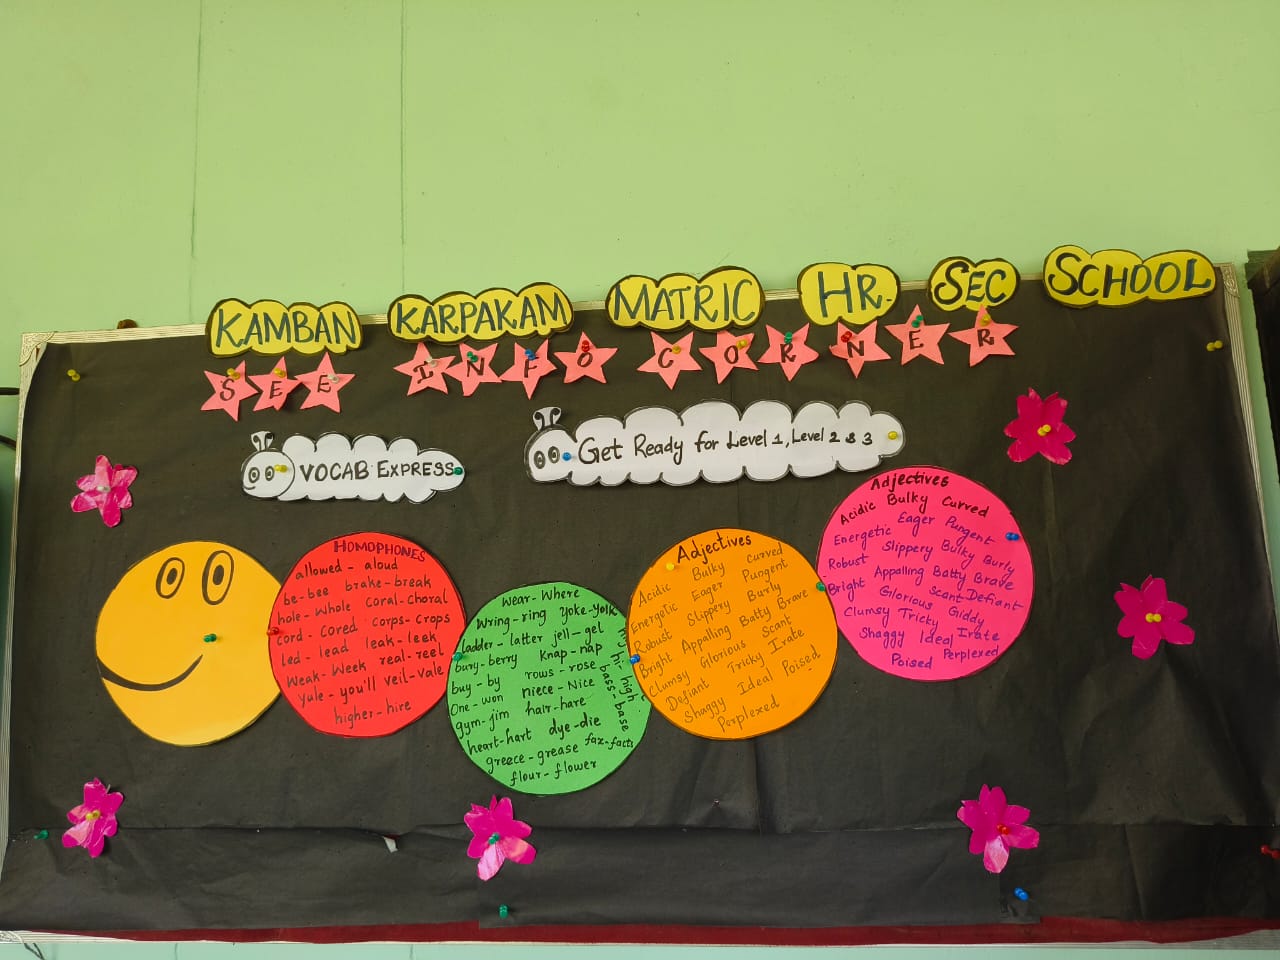 KAMBAN KARPAKAM MATRIC HR. SEC SCHOOL
SEE INFO CORNER
VOCAB EXPRESS
Get Ready for Level 1, Level 2 & 3
HOMOPHONES
allowed - aloud
be - bee brake - break
hole - whole coral - choral
cord - cored corps - crops
led - lead leak - leek
Weak - Week real - reel
yule - you'll veil - vale
higher - hire
Wear - Where
Wring - ring yoke - yolk
ladder - latter jell - gel
bury - berry knap - nap
buy - by rows - rose
One - won niece - Nice
gym - jim hair - hare
heart - hart dye - die
greece - grease fax - facts
flour - flower
hi - high
bass - base
Adjectives
Acidic Bulky Curved
Energetic Eager Pungent
Robust Slippery Burly
Bright Appalling Batty Brave
Clumsy Glorious Scant
Defiant Tricky Irate
Shaggy Ideal Poised
Perplexed
Adjectives
Acidic Bulky Curved
Energetic Eager Pungent
Robust Slippery Bulky Burly
Bright Appalling Batty Brave
Glorious Scant Defiant
Clumsy Tricky Giddy
Shaggy Ideal Irate
Poised Perplexed